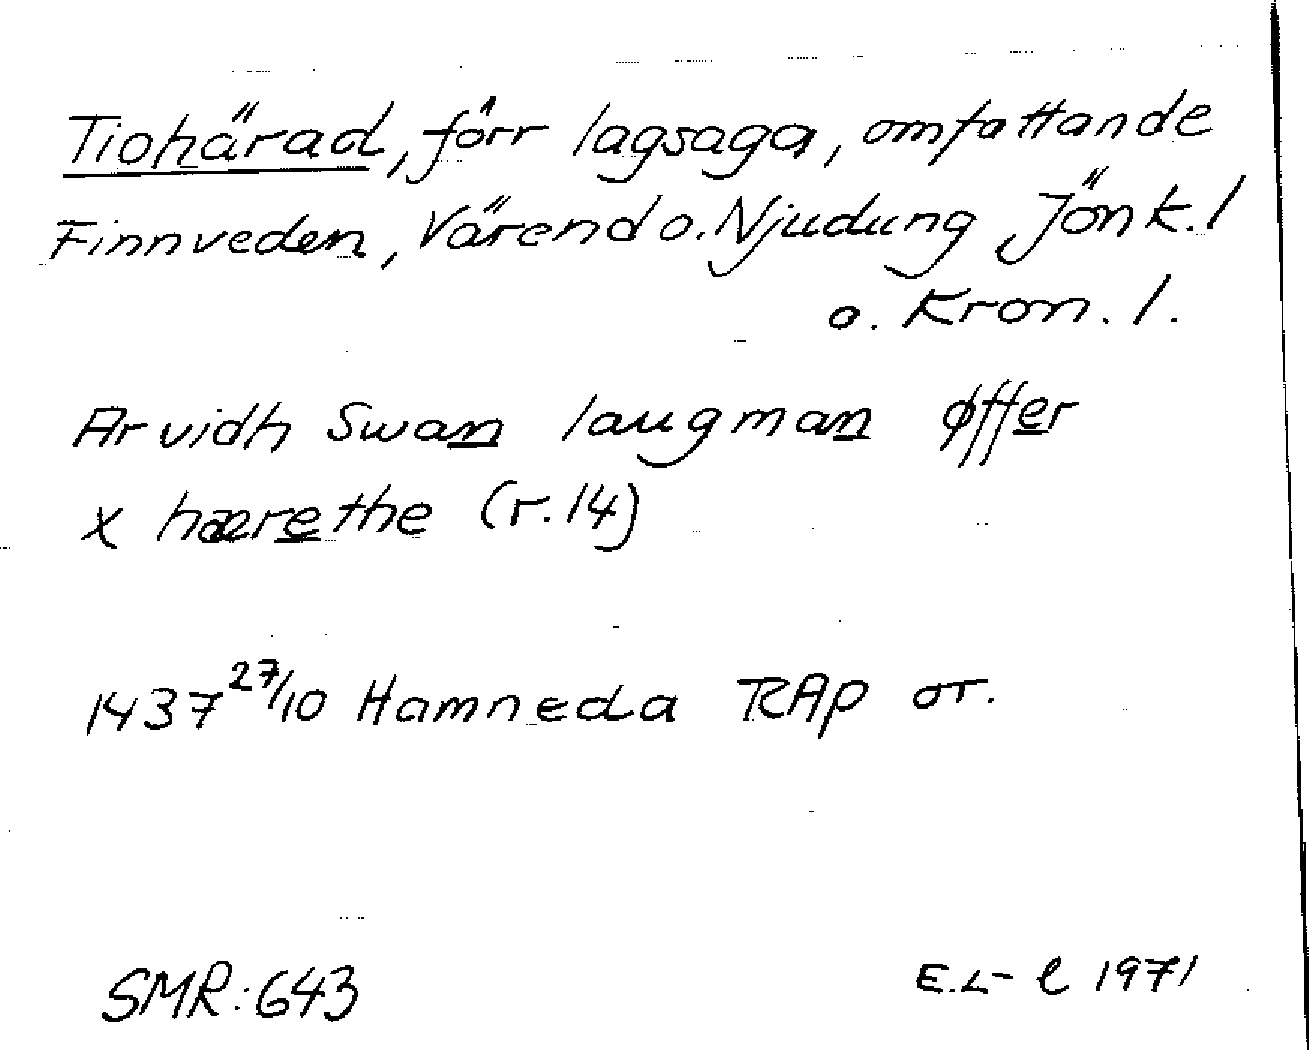 Tiohärad, förr lagsaga, omfattande
Finnveden, Värend o. Njudung Jönk. l
o. Kron. l.
Arvidh Swan laugman øffer
x hærethe (r. 14)
1437 27/10 Hamneda RAp or.
SMR: 643
E.L-l 1971